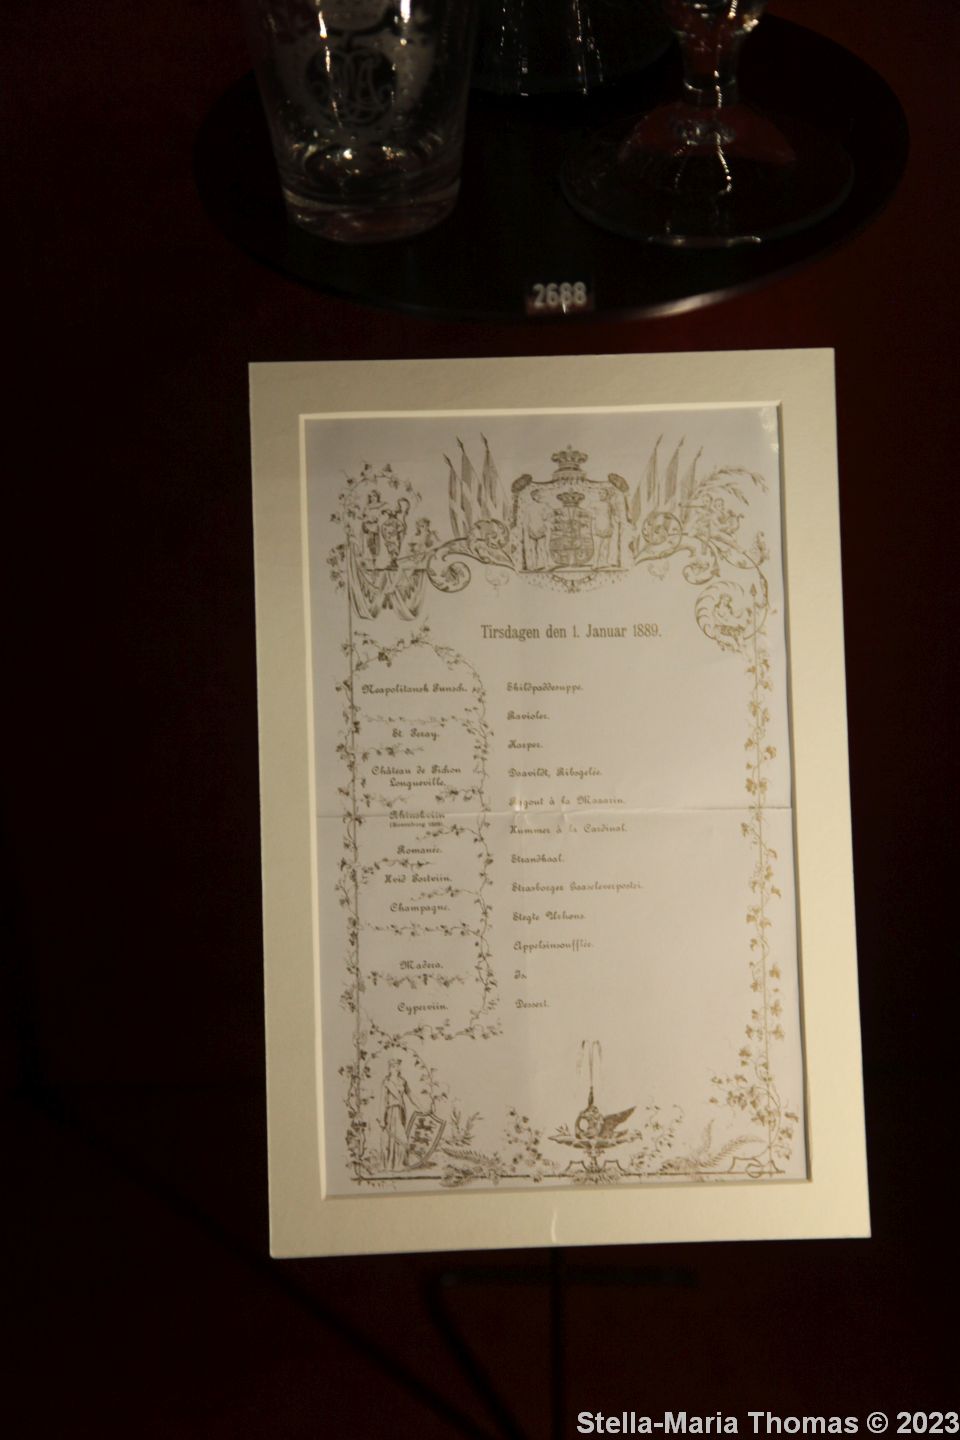 2688
Tirsdagen den 1. Januar 1889.
Neapolitansk Punsch.
St. Peray.
Château de Pichon
Longueville.
Rhinskviin
Romanée.
Hvid Portviin.
Champagne.
Madera.
Cyperviin.
Skildpaddesuppe.
Ravioler.
Karper.
Daavildt, Ribsgelée.
Ragout à la Mazarin.
Hummer à la Cardinal.
Strandkaal.
Strasborger Gaaseleverpostei.
Stegte Urhøns.
Appelsinsoufflée.
Is.
Dessert.
Stella-Maria Thomas © 2023